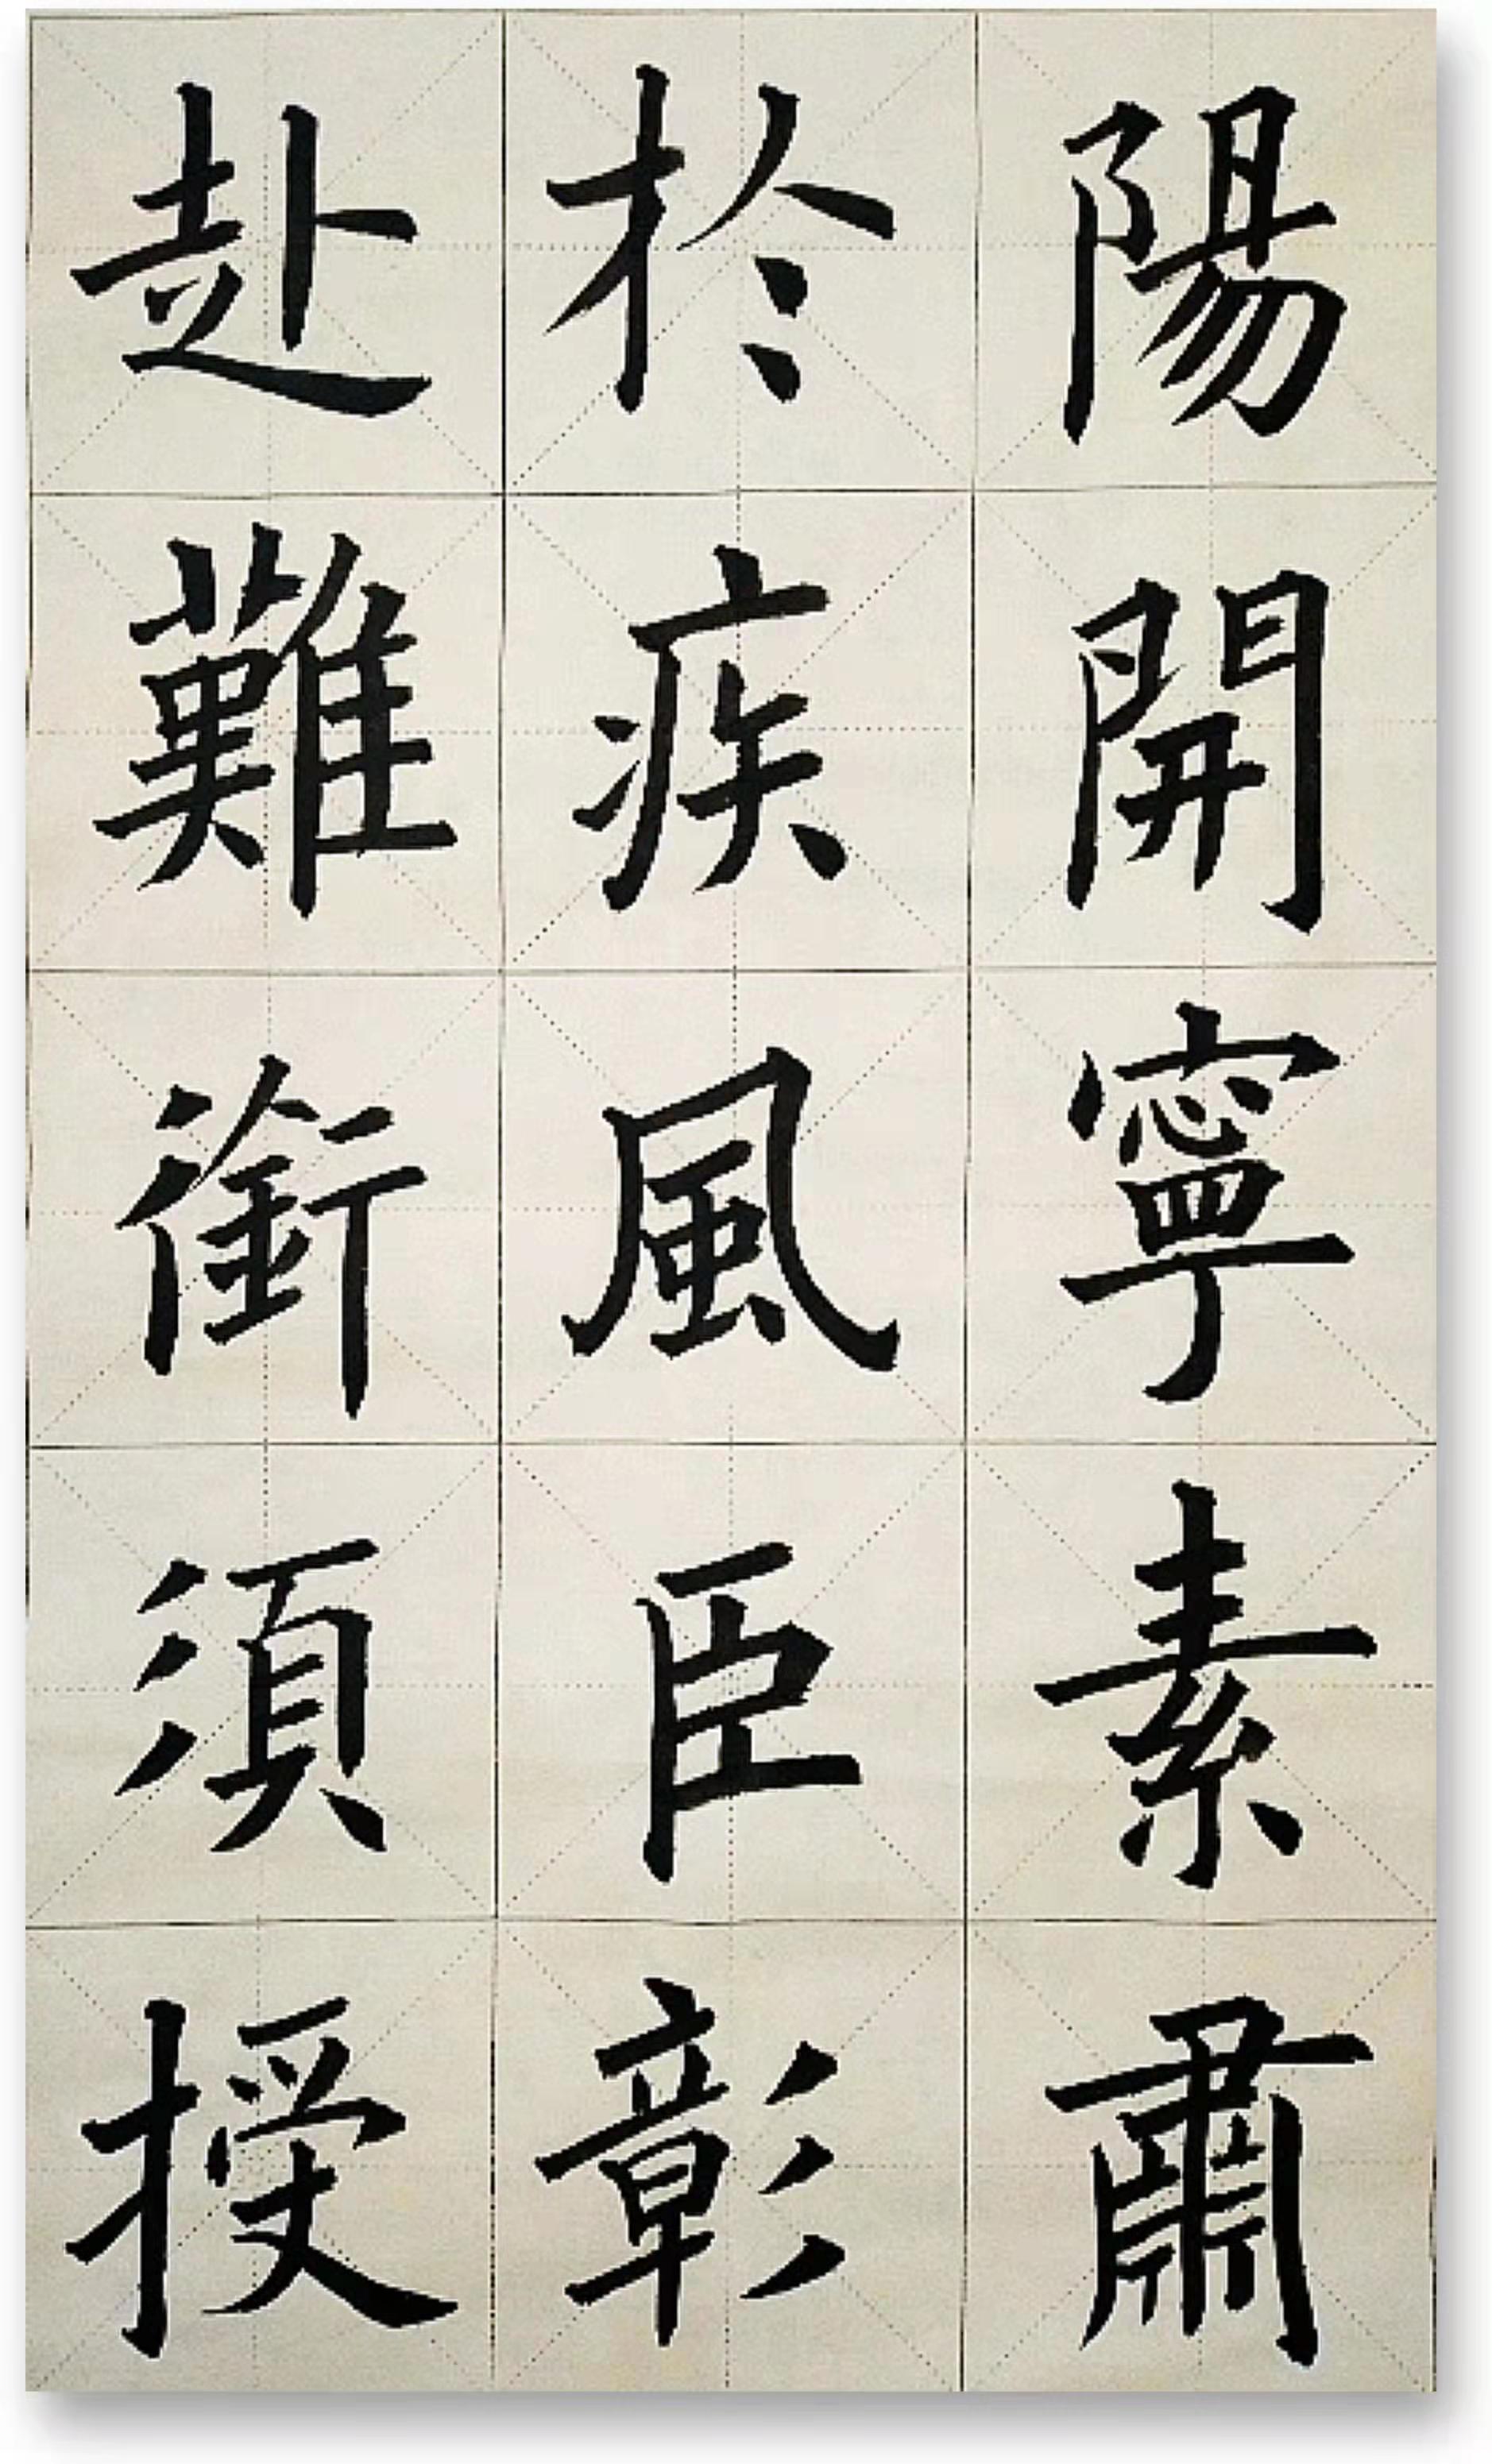 陽開寧素肅
於疾風臣彰
赴難銜須授